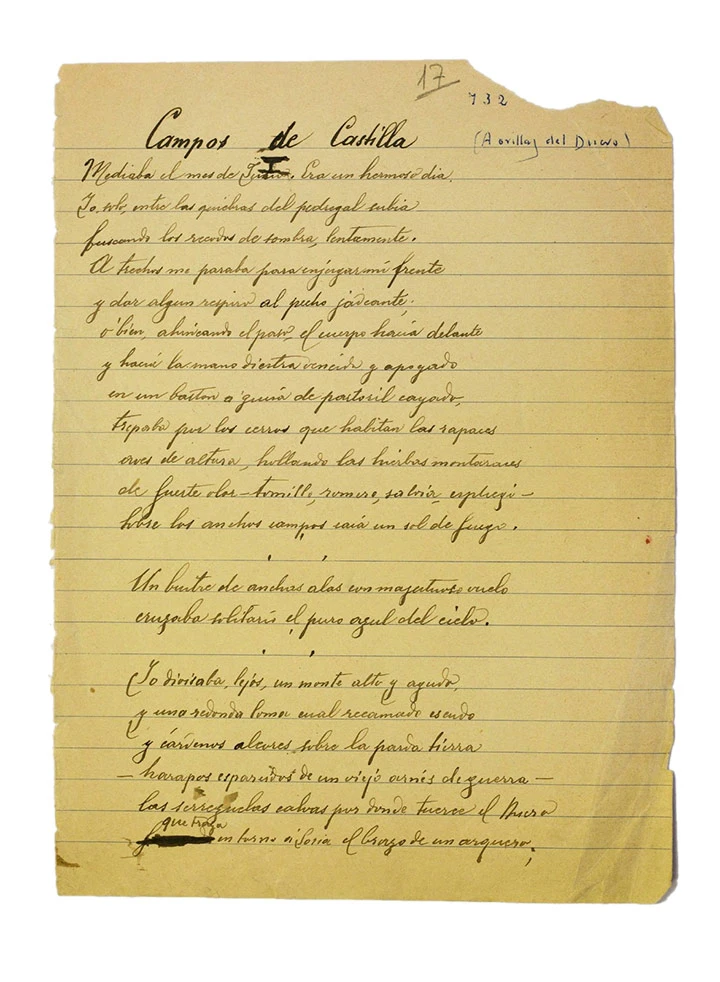 17
732
Campos de Castilla
(A orillas del Duero)
I
Mediaba el mes de Julio. Era un hermoso dia.
Yo, solo, entre las quiebras del pedregal subia
buscando los recodos de sombra, lentamente.
A trechos me paraba para enjugar mi frente
y dar algun respiro al pecho jadeante;
o bien, ahincando el paso, el cuerpo hacia delante
y hacia la mano diestra vencido y apoyado
en un baston a guisa de pastoril cayado,
trepaba por los cerros que habitan las rapaces
aves de altura, hollando las hierbas montaraces
de fuerte olor – tomillo, romero, salvia, espliego –
sobre los anchos campos caia un sol de fuego.
Un buitre de anchas alas con majestuoso vuelo
cruzaba solitario el puro azul del cielo.
Yo divisaba, lejos, un monte alto y agudo,
y una redonda loma cual recamado escudo
y cárdenos alcores sobre la parda tierra
– harapos esparcidos de un viejo arnés de guerra –
las serrezuelas calvas por donde tuerce el Duero
que traza
en torno a Soria el brazo de un arquero;